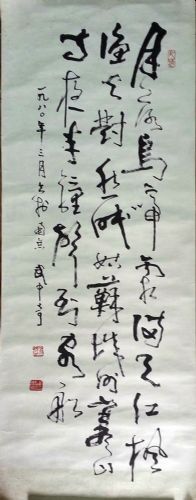 月落烏啼霜滿天江楓
漁火對愁眠姑蘇城外寒山
寺夜半鐘聲到客船
一九八〇年三月书於南京 武中奇